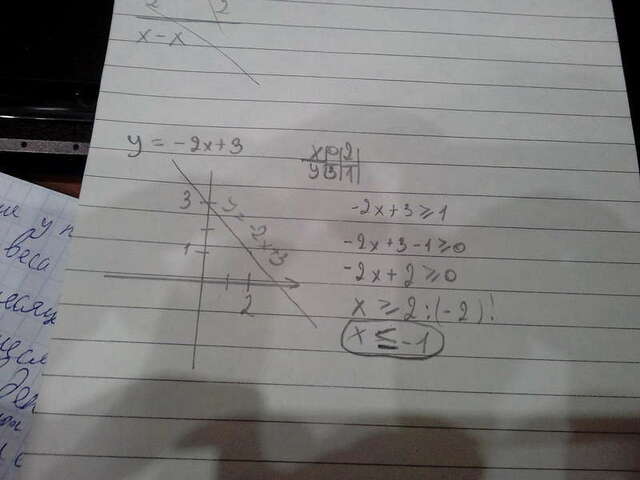 2 2
x - x
y = -2x+3
x|0|2|
y|3|1|
3
1
2
y = -2x+3
-2x+3 ≥ 1
-2x+3-1 ≥ 0
-2x+2 ≥ 0
x ≥ 2:(-2)!
x ≤ -1
веса